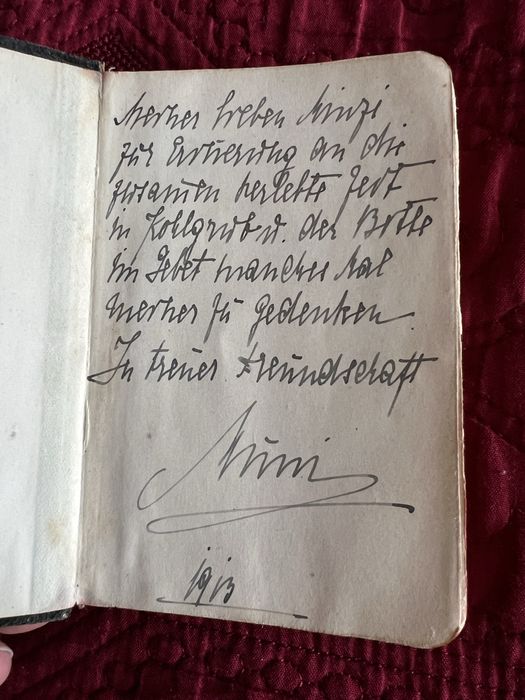 Meiner lieben Minzi
zur Erinerung an die
zusamen verlebte Zeit
in Kohlgrub u. der Bitte
im Gebet manches Mal
meiner zu gedenken.
In treuer Freundschaft
Muni
1913